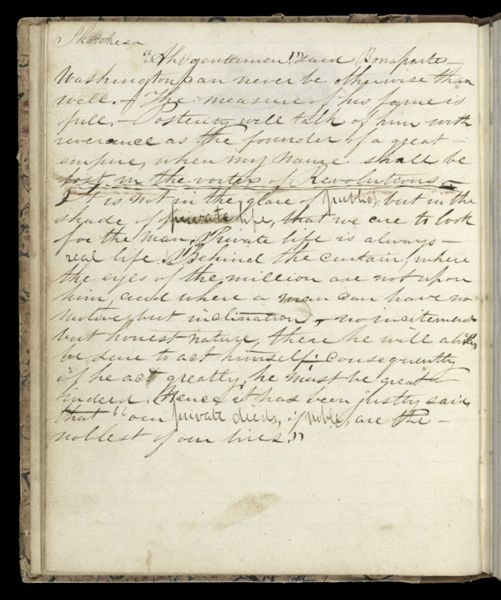 Sketches
"Ah gentlemen!" said Bonaparte
Washington can never be otherwise than
well. The measure of his fame is
full. Posterity will talk of him with
reverence as the founder of a great
empire, when my name shall be
lost in the vortex of Revolutions
It is not in the glare of public, but in the
shade of private life, that we are to look
for the man. Private life is always
real life. Behind the curtain, where
the eyes of the million are not upon
him, and where a man can have no
motive but inclination, no incitement
but honest nature, there he will always
be sure to act himself: consequently
if he act greatly, he must be great
indeed. Hence it has been justly said,
that "our private deeds, if noble, are the
noblest of our lives."